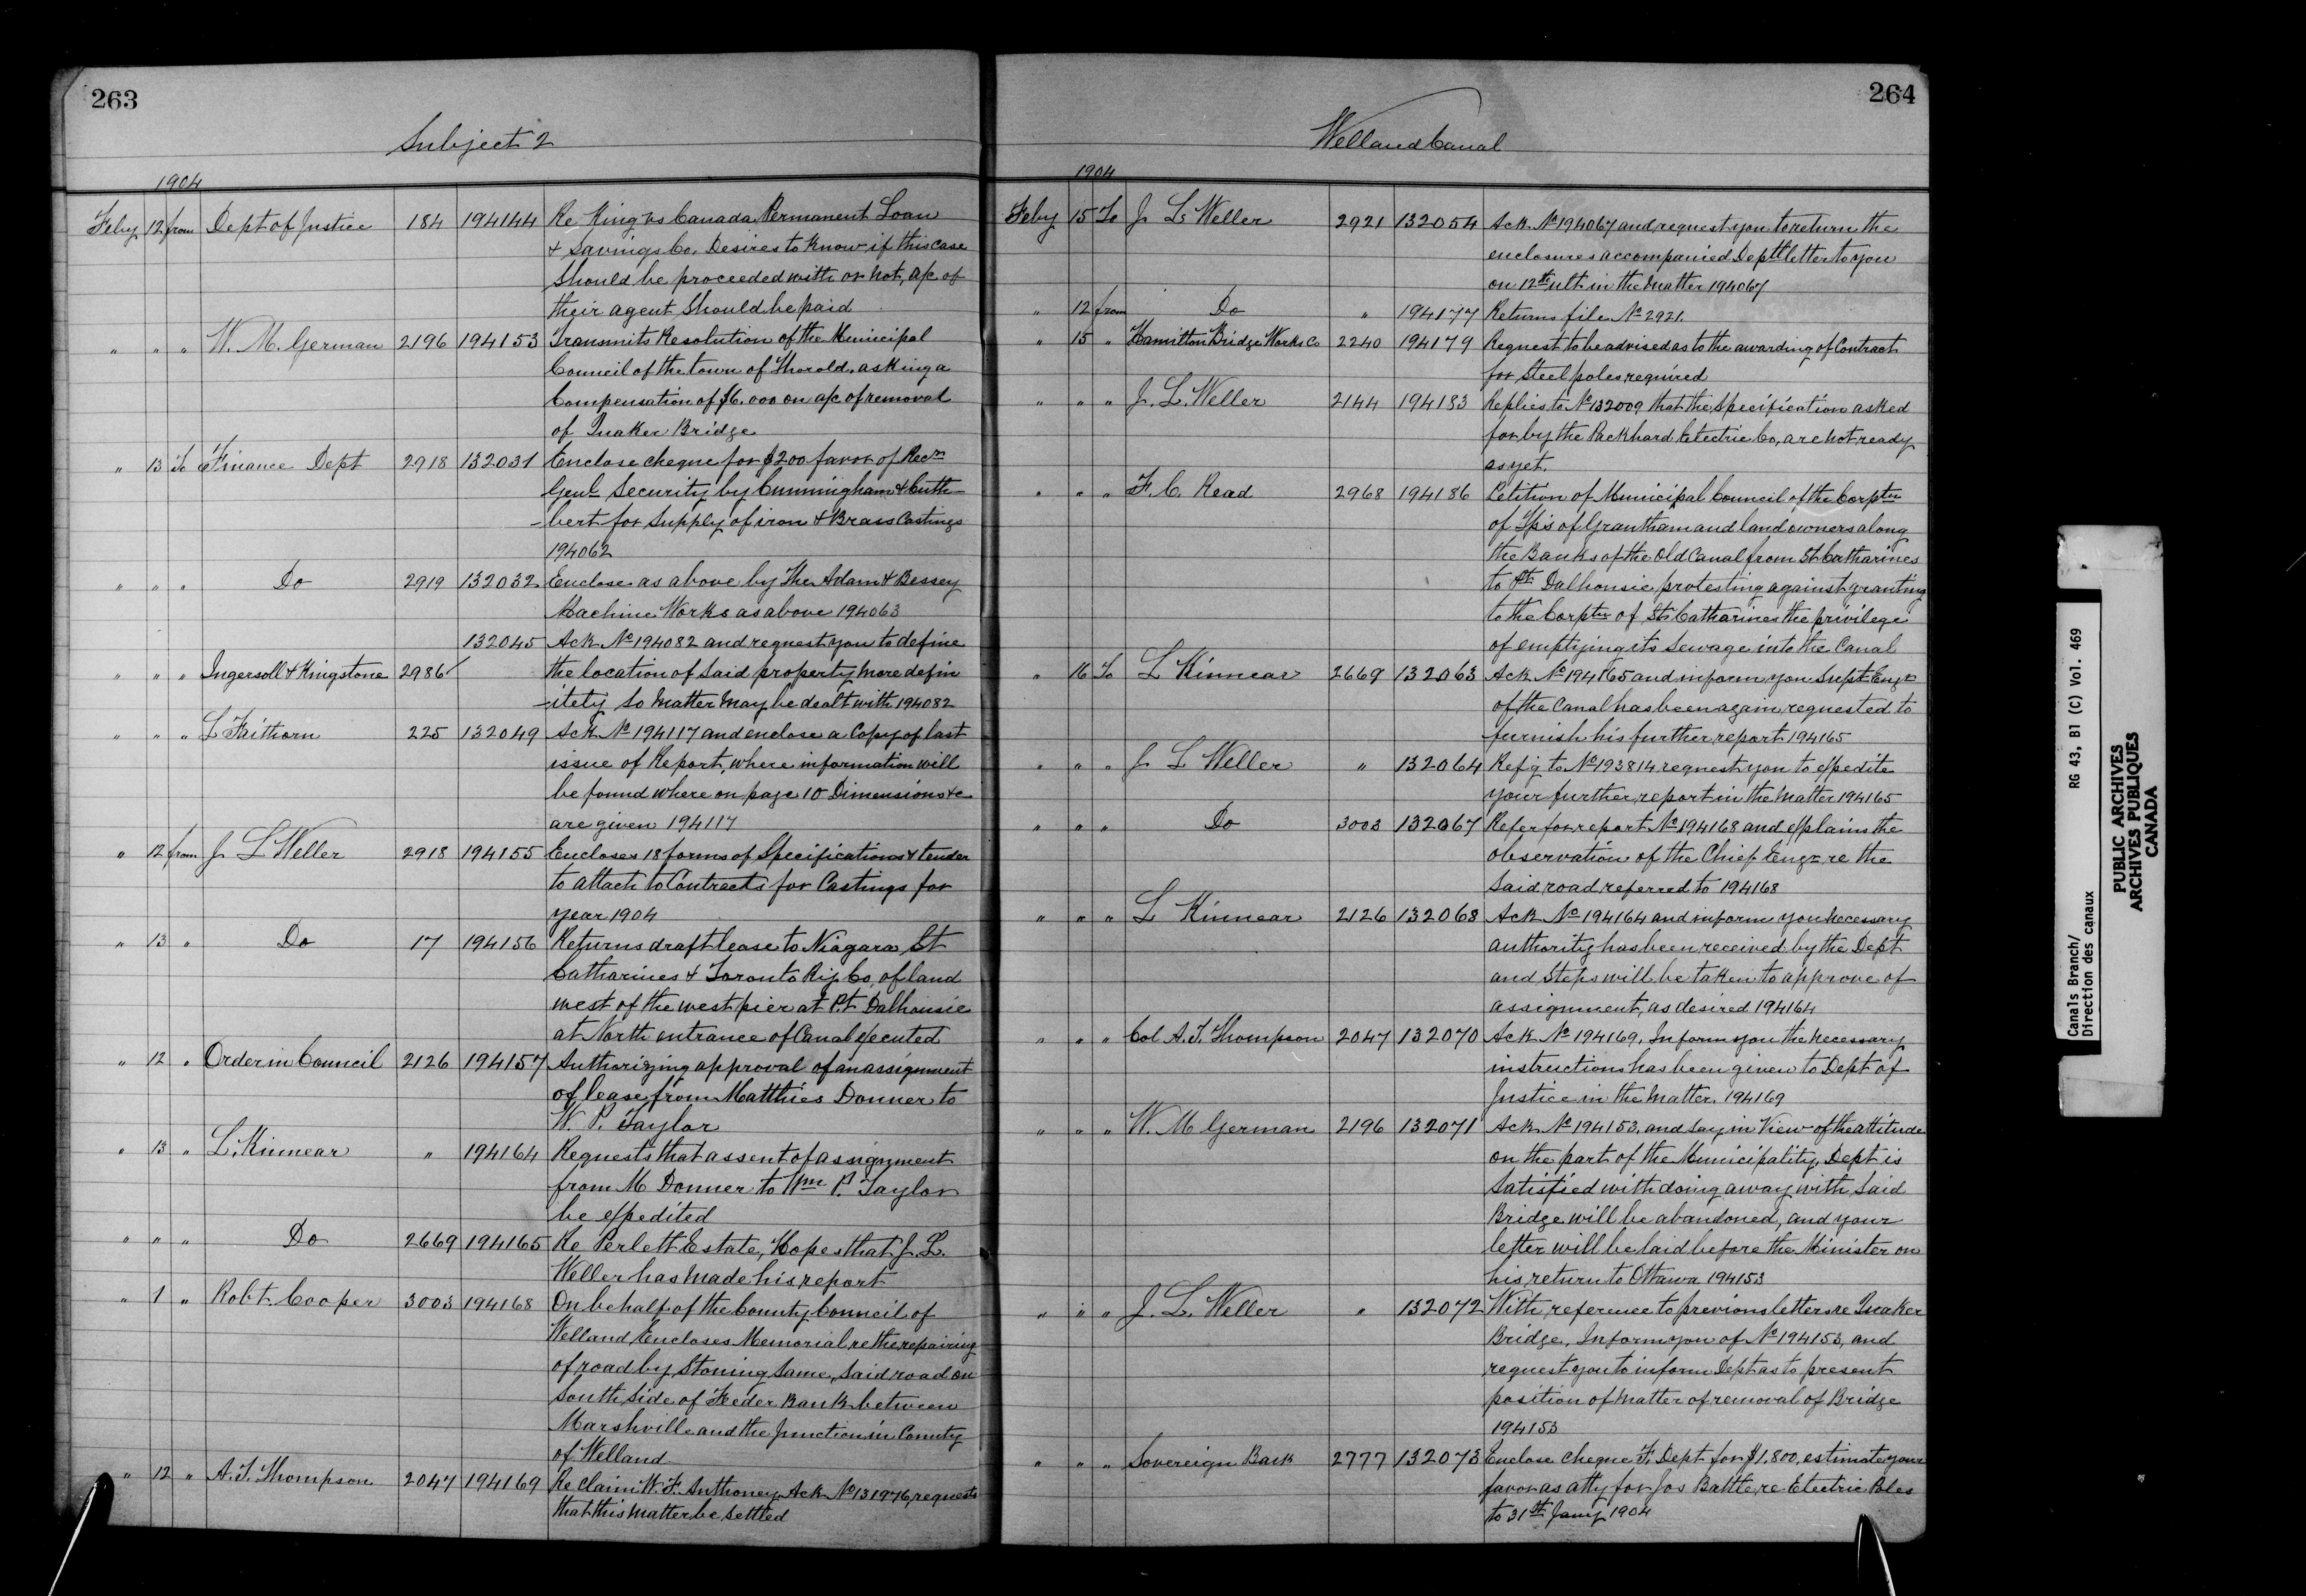 263
Subject 2
1904
Feby 12 from Dept of Justice 184 194144 Re King vs Canada Permanent Loan
& Savings Co. Desires to know if this case
should be proceeded with or not, a/c of
their agent should be paid
" " " W. M. German 2196 194153 Transmits Resolution of the Municipal
Council of the town of Thorold, asking a
Compensation of $6.000 on a/c of removal
of Quaker Bridge
" 13 To Finance Dept 2918 132031 Enclose cheque for $200 favor of Recr
Genl Security by Cunningham & Cuth-
-bert for supply of iron & Brass Castings
194062
" " " Do 2919 132032 Enclose as above by The Adam & Bessey
Machine Works as above 194063
132045 Ack No 194082 and request you to define
" " " Ingersoll & Kingstone 2986 the location of said property more defin
-itely so matter may be dealt with 194082
" " " L Faithorn 225 132049 Ack No 194117 and enclose a Copy of last
issue of Report, where information will
be found where on page 10 Dimensions &c
are given 194117
" 12 from J L Weller 2918 194155 Encloses 18 forms of Specifications & tender
to attach to Contracts for Castings for
year 1904
" 13 " Do 17 194156 Returns draft lease to Niagara St
Catharines & Toronto Ry Co, of land
west of the west pier at Pt Dalhousie
at North entrance of Canal executed
" 12 " Order in Council 2126 194157 Authorizing approval of an assignment
of lease from Matthies Donner to
W. P. Taylor
" 13 " L. Kinnear " 194164 Requests that assent of assignment
from M Donner to Wm P. Taylor
be expedited
" " " Do 2669 194165 Re Perlett Estate, Hopes that J. L.
Weller has made his report
" 1 " Robt Cooper 3003 194168 On behalf of the County Council of
Welland Encloses Memorial re the repairing
of road by stoning same, said road on
South side of Feeder Bank between
Marshville and the Junction in County
of Welland
" 12 " A. T. Thompson 2047 194169 Re Claim W. F. Anthoney Ack No 131976, requests
that this matter be settled
264
Welland Canal
1904
Feby 15 To J L Weller 2921 132054 Ack No 194067 and request you to return the
enclosures accompanied Deptl letter to you
on 12th ult in the matter 194067
" 12 from Do " 194177 Returns file No 2921.
" 15 " Hamilton Bridge Works Co 2240 194179 Request to be advised as to the awarding of Contract
for Steel poles required
" " " J. L. Weller 2144 194183 Replies to No 132009 that the specification asked
for by the Packhard Electric Co, are not ready
as yet.
" " " F. C. Read 2968 194186 Petition of Municipal Council of the Corptn
of Tp's of Grantham and land owners along
the Banks of the Old Canal from St Catharines
to Pt Dalhousie protesting against granting
to the Corptn of St Catharines the privilege
of emptying its sewage into the Canal
" 16 To L Kinnear 2669 132063 Ack No 194165 and inform you Supt Engr
of the Canal has been again requested to
furnish his further report 194165
" " " J L Weller " 132064 Refg to No 193814 request you to expedite
your further report in the matter 194165
" " " Do 3003 132067 Refer for report No 194168 and explains the
observation of the Chief Engr re the
said road referred to 194168
" " " L Kinnear 2126 132068 Ack No 194164 and inform you necessary
authority has been received by the Dept
and steps will be taken to approve of
assignment, as desired 194164
" " " Col A. T. Thompson 2047 132070 Ack No 194169, Inform you the necessary
instructions has been given to Dept of
Justice in the matter. 194169
" " " W. M German 2196 132071 Ack No 194153, and say in View of the attitude
on the part of the Municipality, Dept is
satisfied with doing away with, said
Bridge will be abandoned, and your
letter will be laid before the Minister on
his return to Ottawa 194153
" " " J. L. Weller " 132072 With reference to previous letters re Quaker
Bridge, Inform you of No 194153, and
request you to inform Dept as to present
position of matter of removal of Bridge
194153
" " " Sovereign Bank 2777 132073 Enclose cheque F. Dept for $1.800, estimate your
favor as atty for Jos Battle, re Electric Poles
to 31st Jany 1904
Canals Branch/
Direction des canaux
RG 43, B1 (C) Vol. 469
PUBLIC ARCHIVES
ARCHIVES PUBLIQUES
CANADA